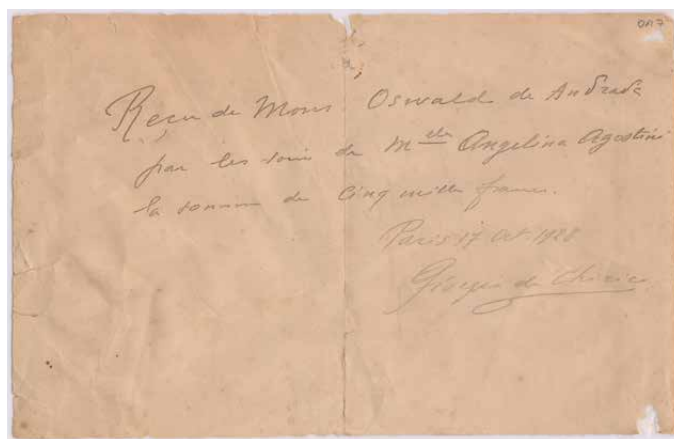 OA7
Reçu de Mons Oswald de Andrade
par les soins de Melle Angelina Agostini
la somme de Cinq mille francs.
Paris 17 Oct. 1928
Giorgio de Chirico